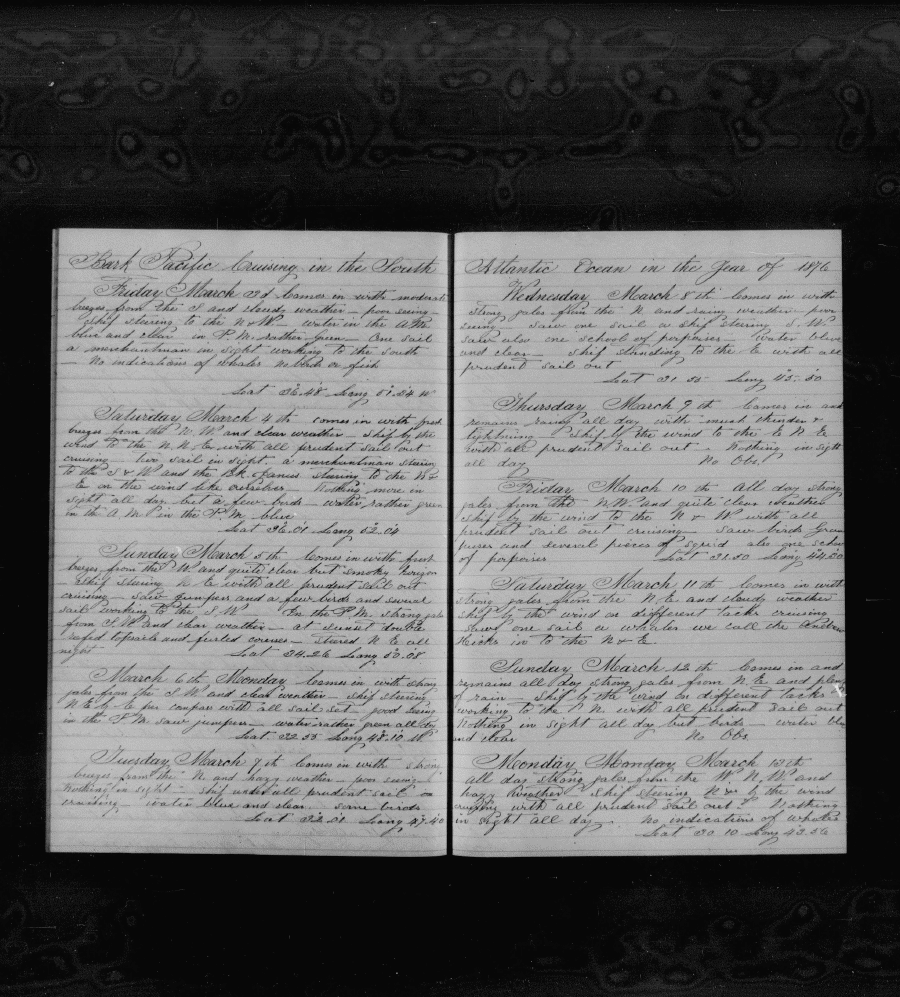 Bark Pacific Cruising in the South
Friday March 3d Comes in with moderate
breezes from the S and cloudy weather — poor seeing —
ship steering to the N & W — water in the A.M.
blue and clear in P.M. rather green — One sail
a merchantman in sight working to the south
— No indications of whales or fish
Lat 36.48 Long 51.24 W
Saturday March 4th comes in with fresh
breezes from the N.W. and clear weather — ship by the
wind to the N.N.E. with all prudent sail out
cruising — two sail in sight — a merchantman steering
to the S & W and the Bk steering to the N &
E on the wind like ourselves Nothing more in
sight all day but a few birds — water rather green
in the A.M. in the P.M. blue
Lat 36.01 Long 52.04
Sunday March 5th Comes in with fresh
breezes from the N.W. and quite clear but smoky horizon
— Ship steering N E with all prudent sail out
cruising — saw jumpers and a few birds and several
sail working to the S W In the P.M. strong gales
from S W and clear weather — at sunset double
reefed topsails and furled courses — steered N E all
night Lat 34.26 Long 50.08
March 6th Monday Comes in with strong
gales from the S W and clear weather — ship steering
N E by E per compass with all sail set — good seeing
in the P.M. saw jumpers — water rather green all day
Lat 32.55 Long 48.10 W
Tuesday March 7th Comes in with strong
breezes from the N and hazy weather — poor seeing —
Nothing in sight — ship under all prudent sail
cruising — water blue and clear some birds
Lat 32.01 Long 47.40
Atlantic Ocean in the Year of 1876
Wednesday March 8th Comes in with
strong gales from the N and rainy weather — poor
seeing — saw one sail a ship steering S W
saw also one school of porpoises — water blue
and clear — ship standing to the E with all
prudent sail out
Lat 31.55 Long 45.50
Thursday March 9th Comes in and
remains rainy all day with much thunder &
lightning — ship by the wind to the E N E
with all prudent sail out — Nothing in sight
all day No Obs
Friday March 10th All day strong
gales from the N W and quite clear weather
ship by the wind to the N & W with all
prudent sail out cruising — saw birds
and several pieces of squid also one school
of porpoises Lat 31.50 Long 44.00
Saturday March 11th Comes in with
strong gales from the N.E. and cloudy weather
ship by the wind on different tacks cruising
saw one sail a whaler we call the Andrew
Hicks in to the N & E
Sunday March 12th Comes in and
remains all day strong gales from N.E. and plenty
of rain — ship by the wind on different tacks
working to the N with all prudent sail out
Nothing in sight all day but birds — water blue
and clear No Obs
Monday Monday March 13th
all day strong gales from the W N W and
hazy weather — ship steering by the wind
cruising with all prudent sail out — Nothing
in sight all day — no indications of whales
Lat 30.10 Long 43.56